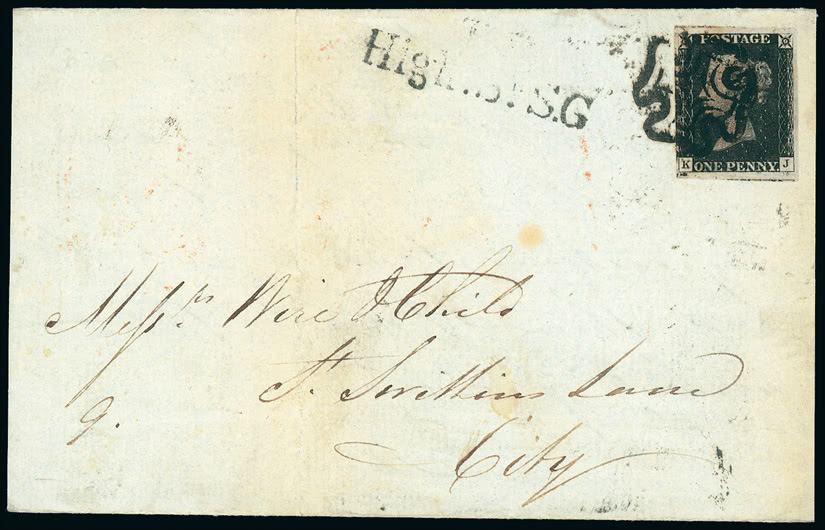 POSTAGE
High..St S.G
K ONE PENNY. J
Messrs Wire & Child
9. St Swithins Lane
City